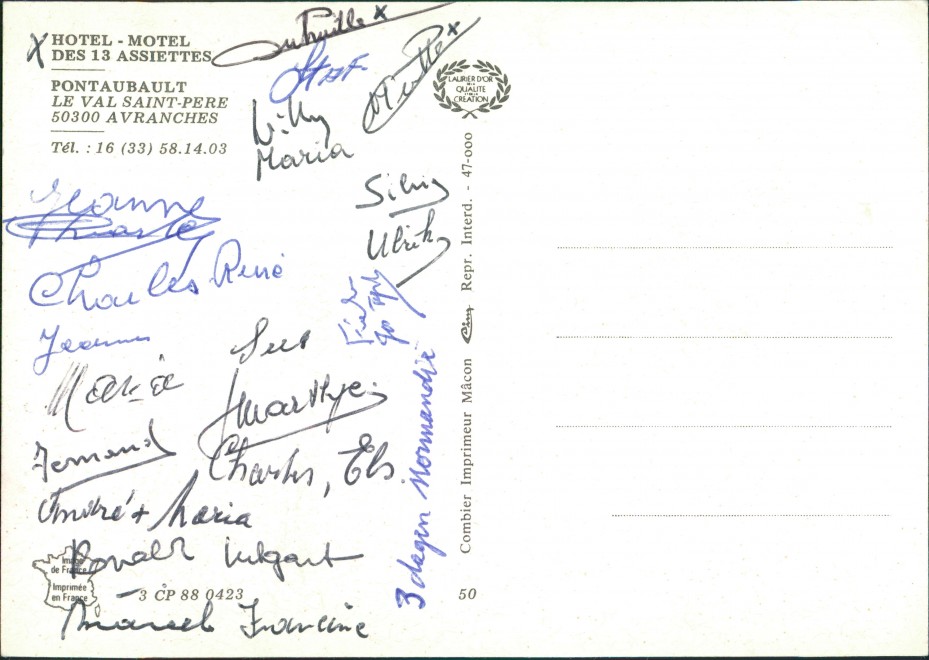 X HOTEL - MOTEL
DES 13 ASSIETTES
PONTAUBAULT
LE VAL SAINT-PERE
50300 AVRANCHES
Tél. : 16 (33) 58.14.03
Staf
Willy
Maria
LAURIER D'OR
DE LA
QUALITE
ET DE LA
CREATION
Silvy
Ulrik
Jeanne
Charles René
Jeanne
Maria
Sus
Fernand
Marthe
Charles, Els.
André + Maria
Ronald
Marcel Francine
3 dagen Normandië
Image
de France
Imprimée
en France
3 CP 88 0423
50
Combier Imprimeur Mâcon
Cim
Repr. Interd. - 47-000